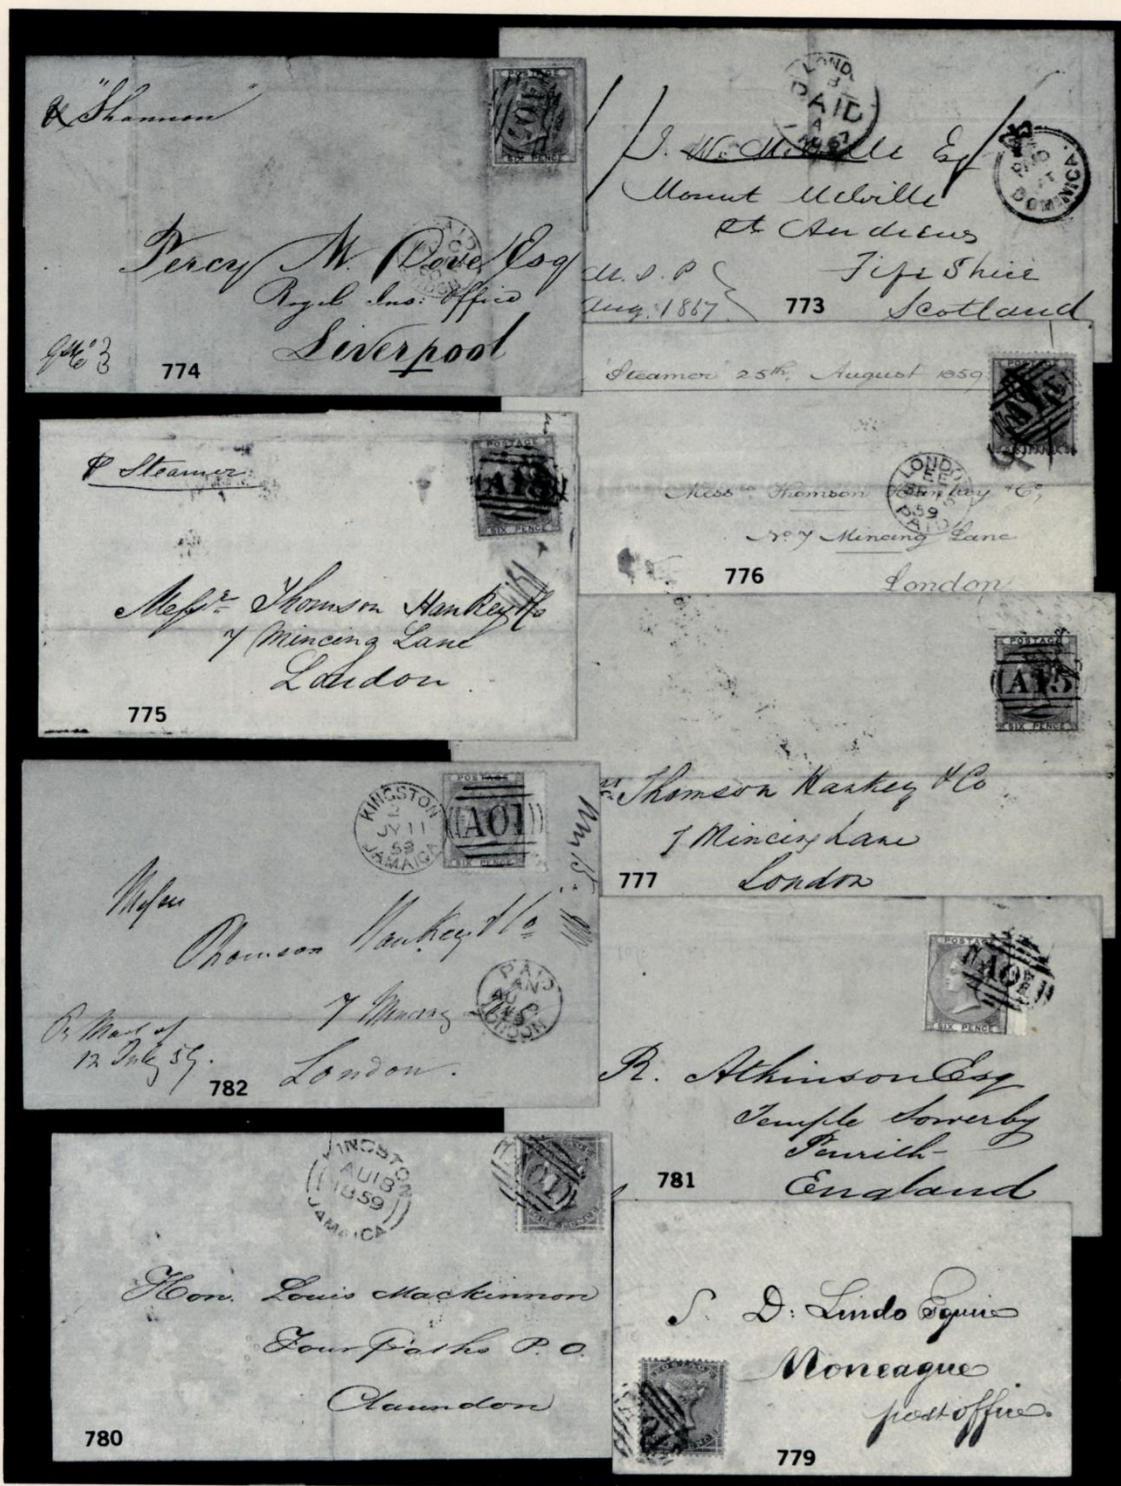 "Shannon"
SIX PENCE
Percy M. Dove Esq
Royal Ins: Office
Liverpool
774
PAID
J. W. Melville Esq
Mount Melville
St Andrews
Fife Shire
Scotland
PAID
DOMINICA
Aug. 1867
773
Steamer 25th, August 1859
LONDON
59
PAID
Messrs Thomson Hankey & Co,
No 7 Mincing Lane
London
776
P Steamer
POSTAGE
A15
SIX PENCE
Messrs Thomson Hankey & Co
7 Mincing Lane
London
775
POSTAGE
A15
SIX PENCE
Thomson Hankey & Co
7 Mincing Lane
London
777
KINGSTON
JY 11
59
JAMAICA
POSTAGE
A01
SIX PENCE
Thomson Hankey & Co
7
London.
PAID
LONDON
12 July 59.
782
POSTAGE
A01
SIX PENCE
R. Atkinson Esq
Temple Sowerby
Penrith
England
781
KINGSTON
AU 18
1859
JAMAICA
Hon. Louis Mackinnon
Four Paths P.O.
Clarendon
780
S. D: Lindo Esquire
Moneague
post office.
779